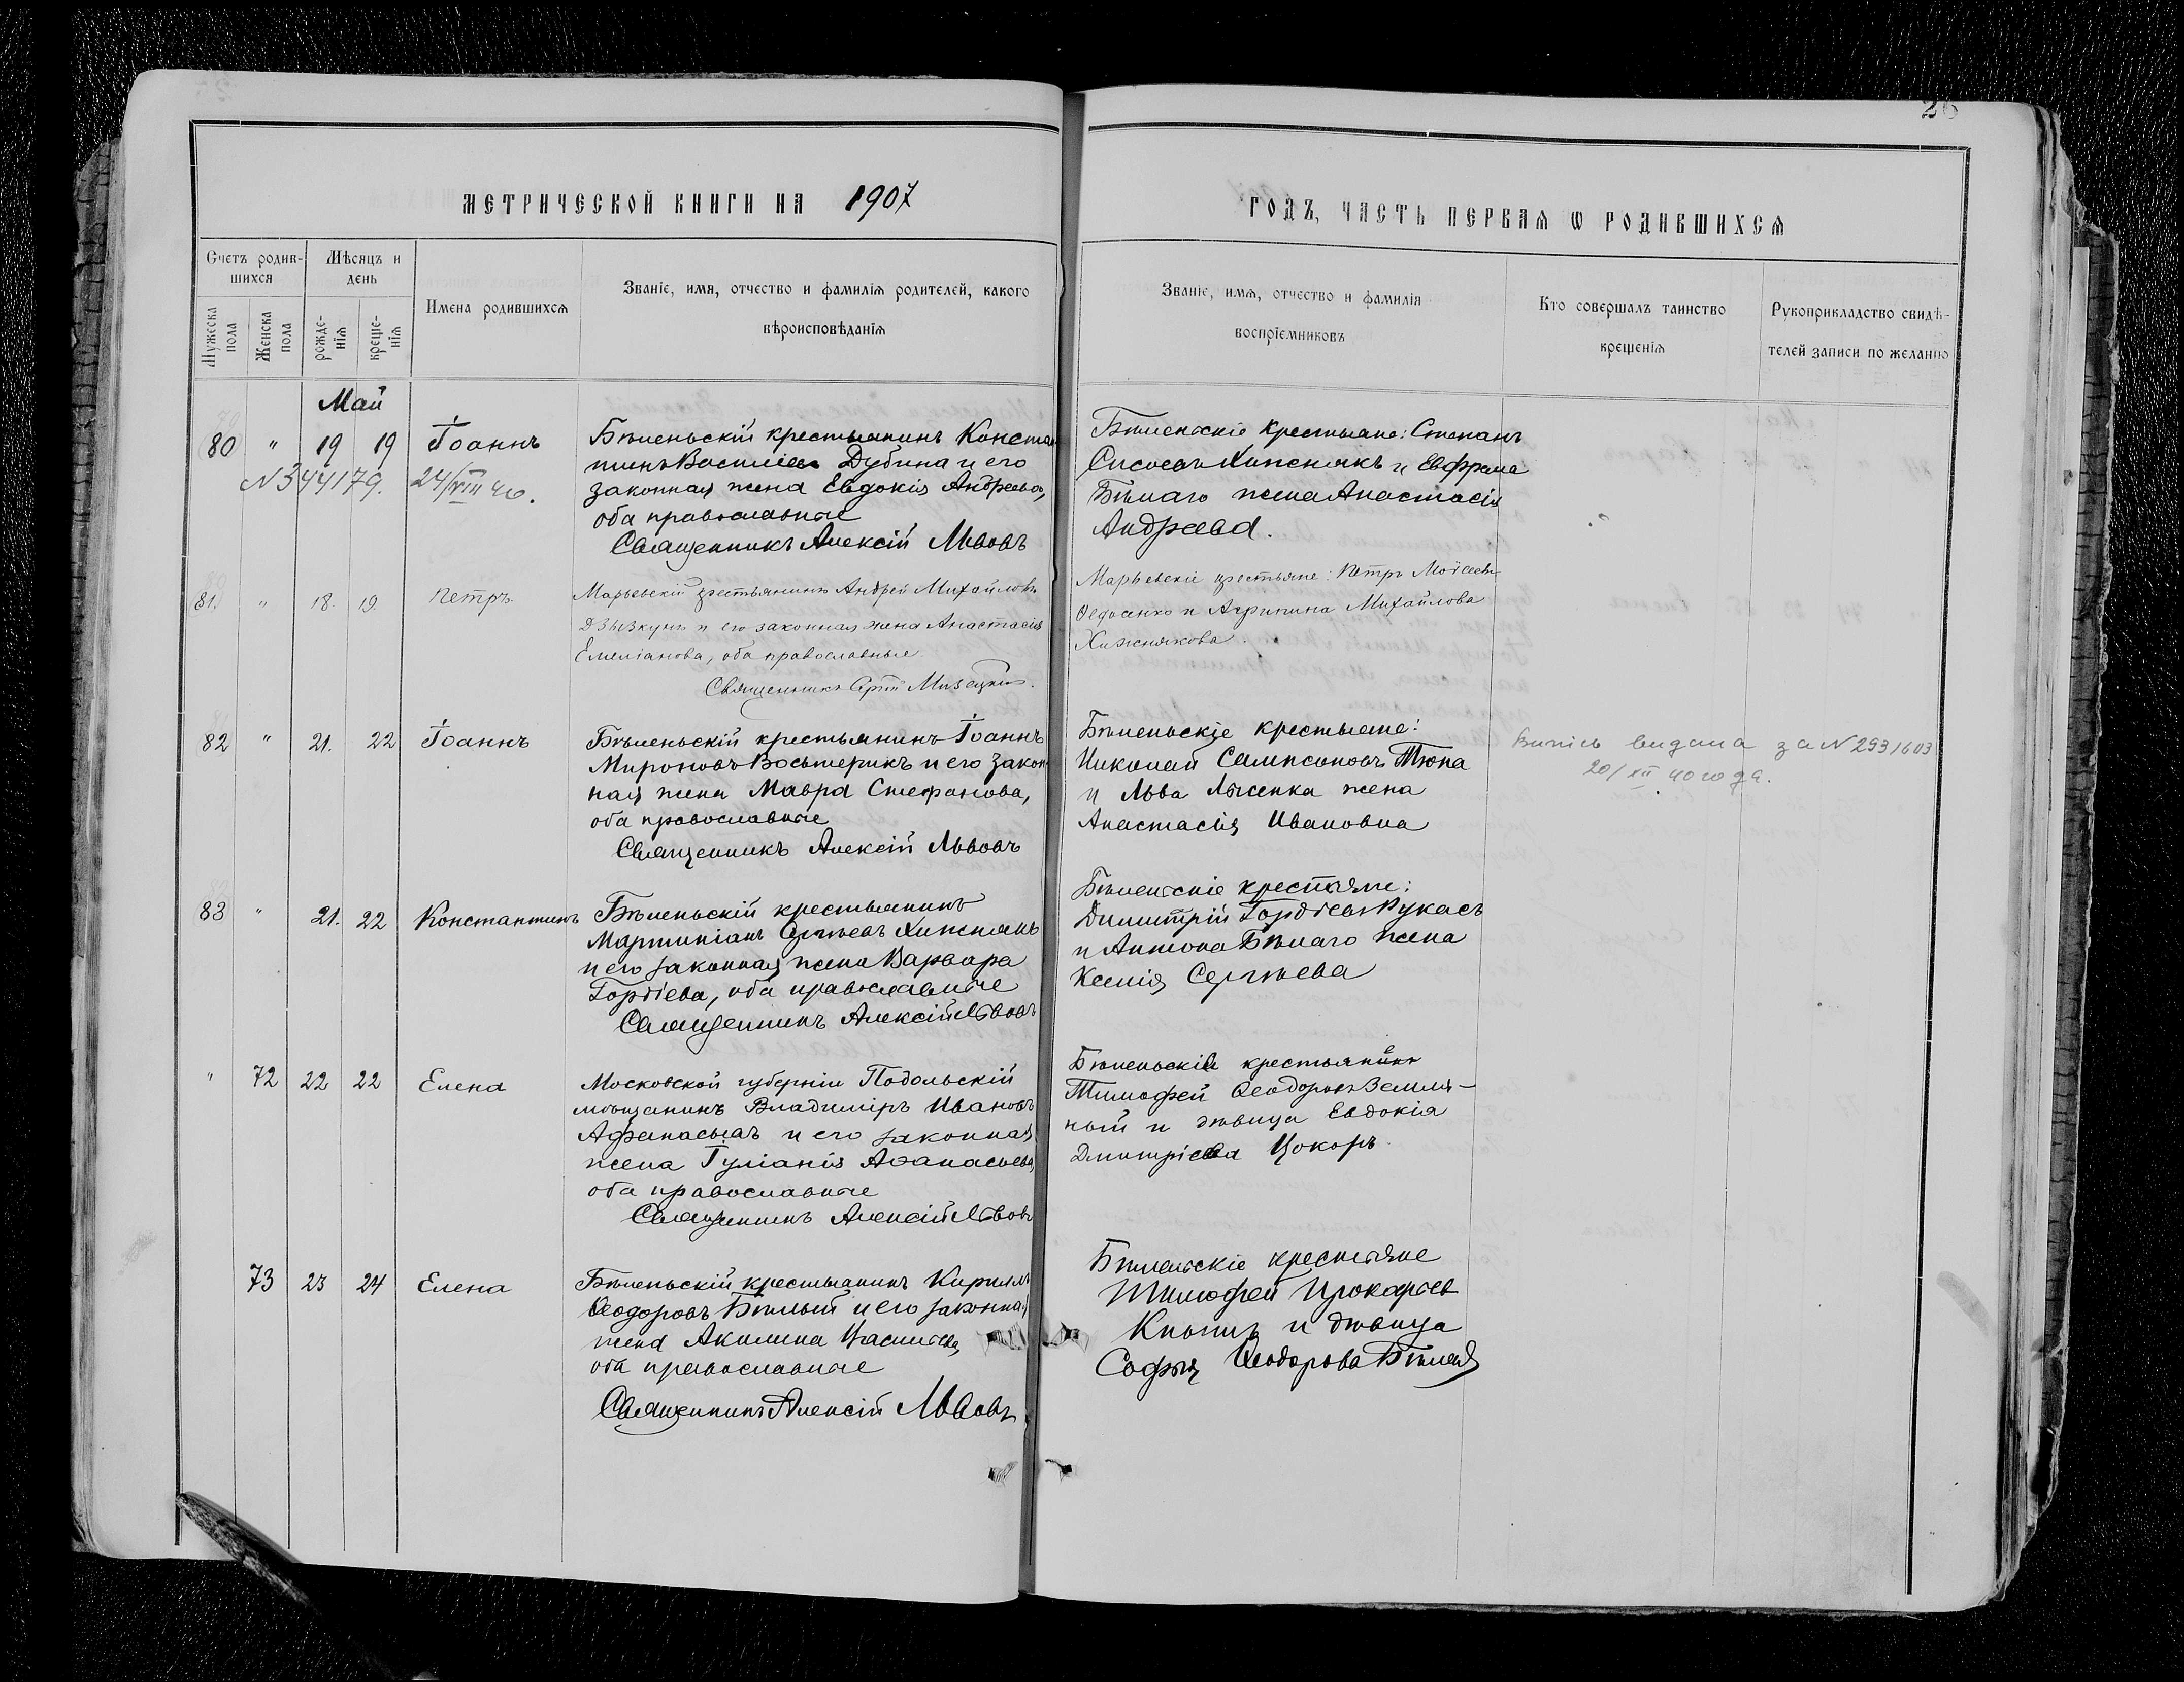 26
МЕТРИЧЕСКОЙ КНИГИ НА 1907
ГОДЪ, ЧАСТЬ ПЕРВАЯ Ѡ РОДИВШИХСЯ
Счетъ родив-
шихся
Мужеска пола
Женска пола
Мѣсяцъ и
день
рожде-
нія
креще-
нія
Имена родившихся
Званіе, имя, отчество и фамилія родителей, какого
вѣроисповѣданія
Званіе, имя, отчество и фамилія
воспріемниковъ
Кто совершалъ таинство
крещенія
Рукоприкладство свидѣ-
телей записи по желанію
Май
80 " 19 19 Іоаннъ
N 344179. 24/VIII 40.
Бѣленьскій крестьянинъ Конста
тинъ Василіевъ Дубина и его
законная жена Евдокія Андреева,
оба православные
Священникъ Алексій Львовъ
Бѣленьскіе крестьяне: Степанъ
Сисоевъ Хижнякъ и Евфрема
Бѣлаго жена Анастасія
Андреева.
81. " 18. 19. Петръ
Марьевскій крестьянинъ Андрей Михайловъ
Дзызкунъ и его законная жена Анастасія
Емеліанова, оба православные
Священникъ
Марьевскіе крестьяне: Петръ Моѵсеевъ
Федосенко и Агрипина Михайлова
Хижнякова.
82 " 21. 22 Іоаннъ
Бѣленьскій крестьянинъ Іоаннъ
Мироновъ Восьмерикъ и его закон
ная жена Мавра Стефанова,
оба православные
Священникъ Алексій Львовъ
Бѣленьскіе крестьяне:
Николай Сампсоновъ Тюпа
и Льва Лысенка жена
Анастасія Ивановна
Випись видана за N 2931603
20/XII 40 года.
83 " 21. 22 Константинъ
Бѣленьскій крестьянинъ
Мартиніанъ Хижнякъ
и его законная жена Варвара
Гордіева, оба православные
Священникъ Алексій Львовъ
Бѣленьскіе крестьяне:
Димитрій Гордіевъ Кукасъ
и Антона Бѣлаго жена
Ксенія Сергѣева
" 72 22 22 Елена
Московской губерніи Подольскій
мѣщанинъ Владиміръ Ивановъ
Афанасьевъ и его законная
жена Іуліанія Аѳанасьева,
оба православные
Священникъ Алексій Львовъ
Бѣленьскіе крестьяне
Тимофей Ѳеодоровъ Земля-
ной и дѣвица Евдокія
Димитріева Цокоръ.
73 23 24 Елена
Бѣленьскій крестьянинъ Кириллъ
Ѳеодоровъ Бѣлый и его законна
жена Акилина Васильева,
оба православные
Священникъ Алексій Львовъ.
Бѣленьскіе крестьяне
Тимофей Прокофьев
и дѣвица
Софья Ѳеодорова Бѣлая